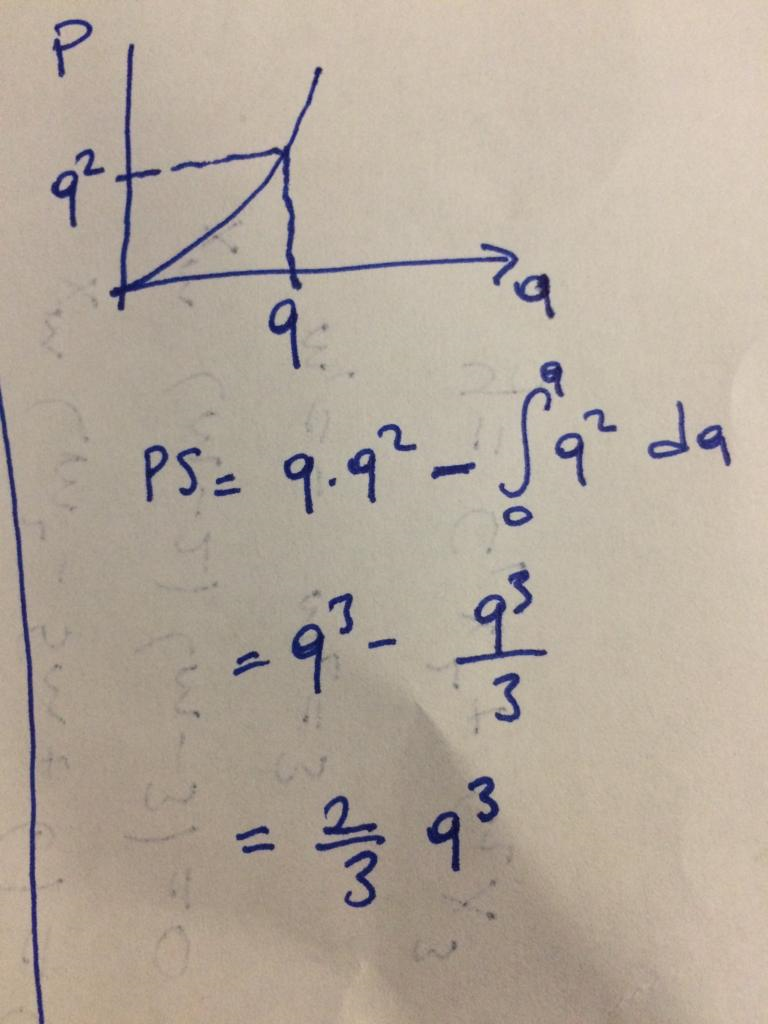 P
q²
q
q
PS = q.q² - ∫₀^q q² dq
= q³ - q³/3
= 2/3 q³